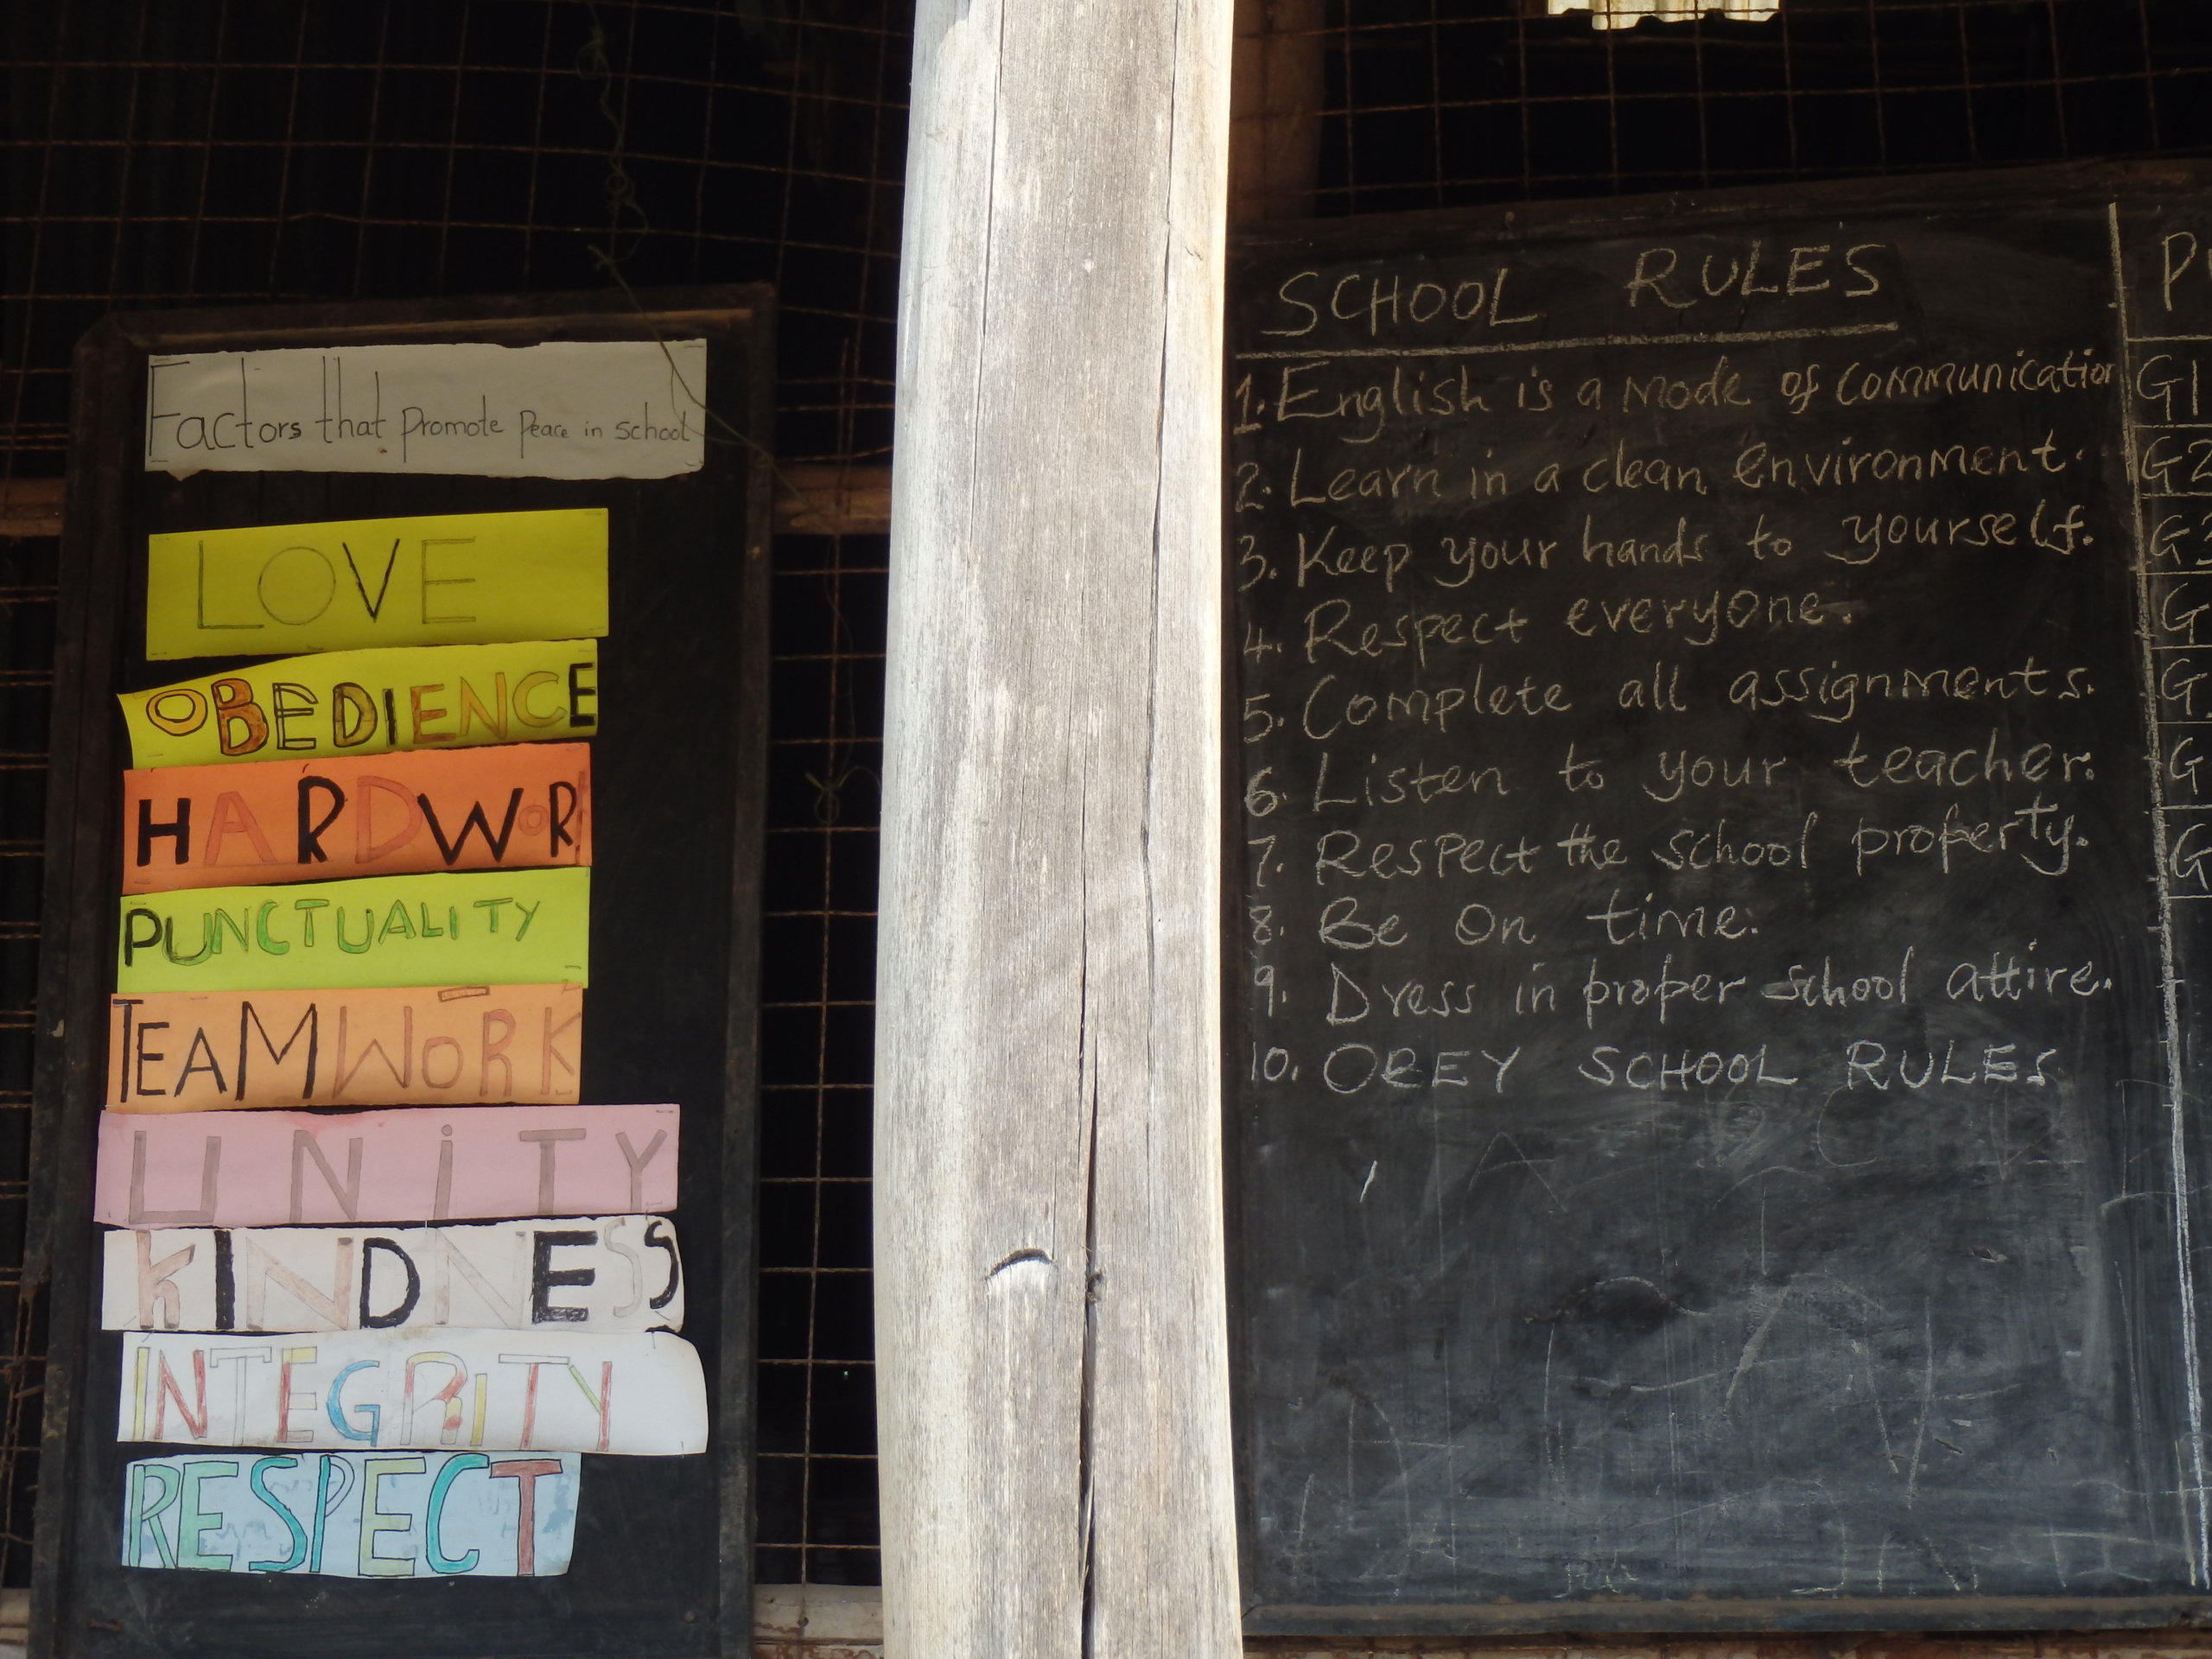 Factors that promote Peace in school
LOVE
OBEDIENCE
HARDWORK
PUNCTUALITY
TEAMWORK
UNiTY
KINDNESS
INTEGRITY
RESPECT
SCHOOL RULES
1. English is a mode of communication
2. Learn in a clean environment.
3. Keep your hands to yourself.
4. Respect everyone.
5. Complete all assignments.
6. Listen to your teacher.
7. Respect the school property.
8. Be On time.
9. Dress in proper school attire.
10. OBEY SCHOOL RULES
G1
G2
G3
G
G
G
G